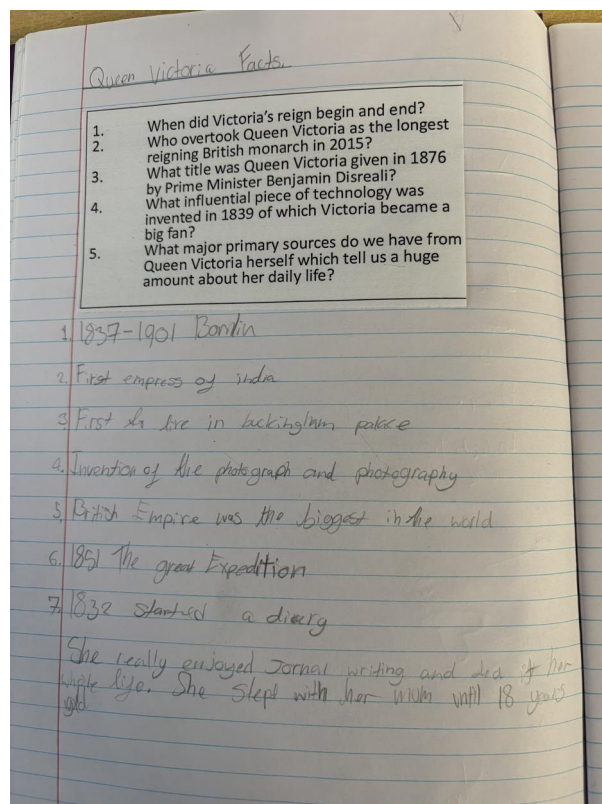 Queen Victoria Facts.
1. When did Victoria's reign begin and end?
2. Who overtook Queen Victoria as the longest
reigning British monarch in 2015?
3. What title was Queen Victoria given in 1876
by Prime Minister Benjamin Disreali?
4. What influential piece of technology was
invented in 1839 of which Victoria became a
big fan?
5. What major primary sources do we have from
Queen Victoria herself which tell us a huge
amount about her daily life?
1. 1837-1901
2. First empress of india
3. First to live in buckingham palace
4. Invention of the photograph and photography
5. British Empire was the biggest in the world
6. 1851 The great Expedition
7. 1832 started a diary
She really enjoyed Jornal writing and did it her
whole life. She slept with her mum until 18 years
old